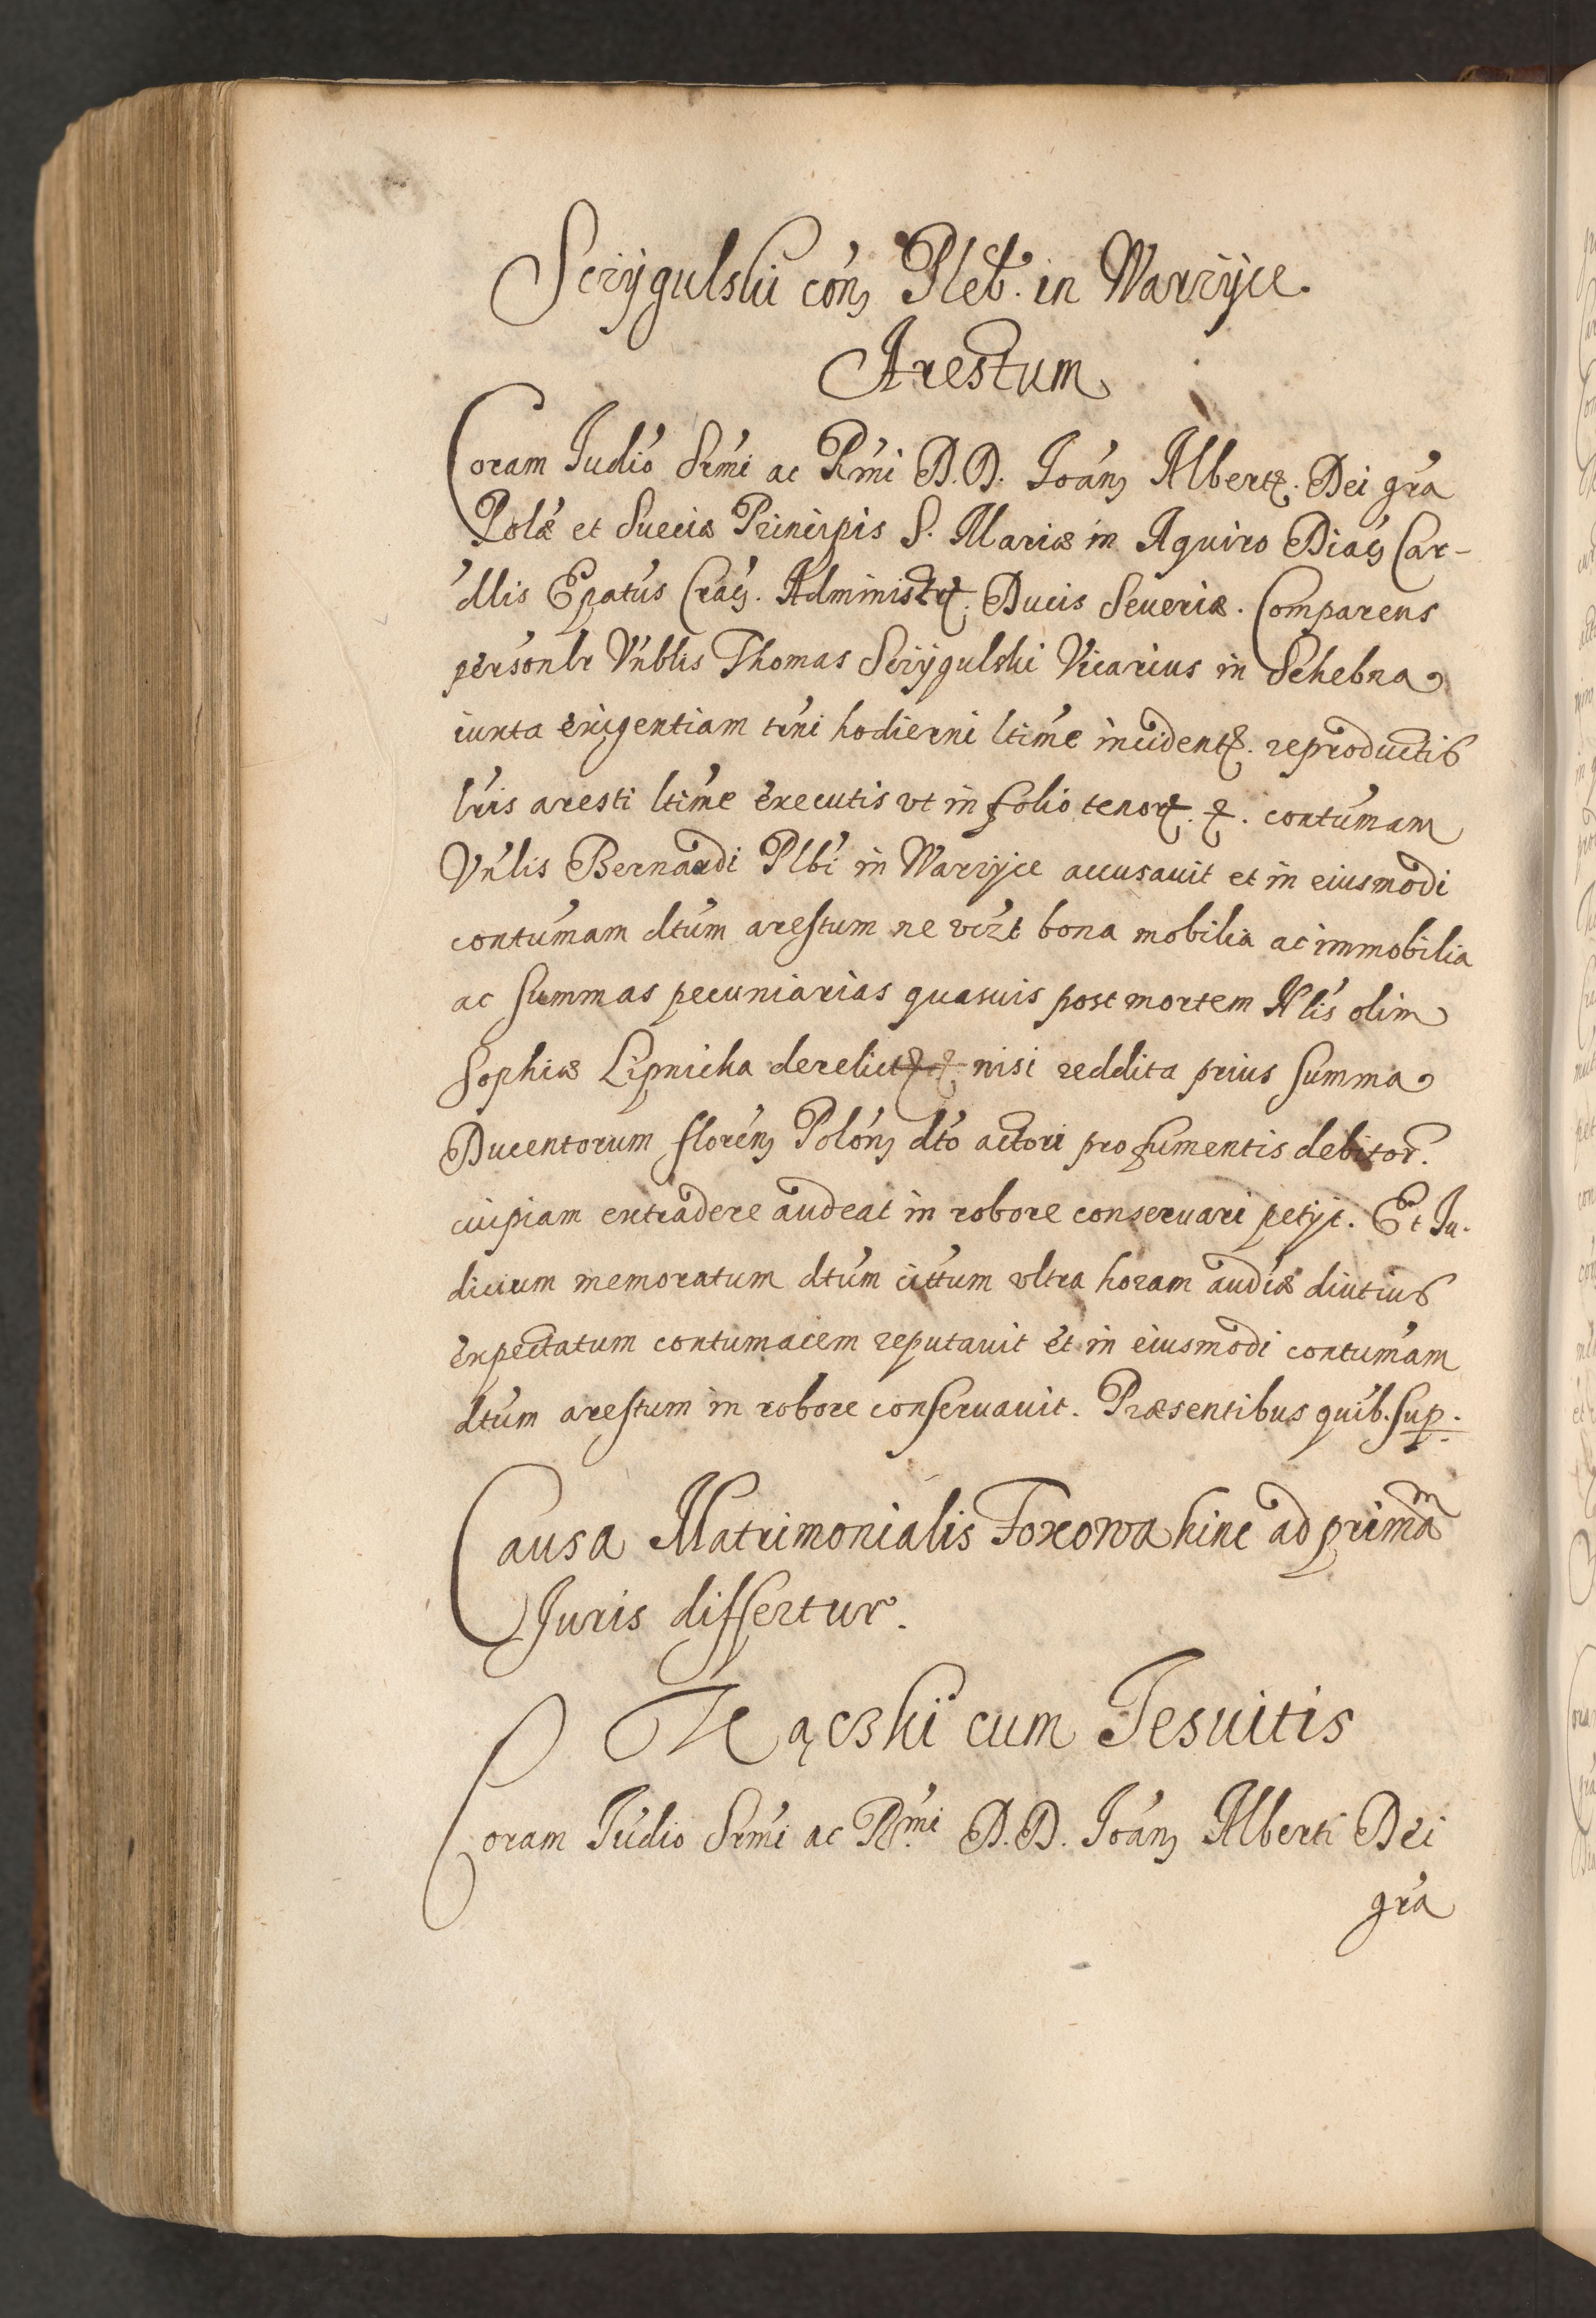 Scrÿgulski cón, Pleb. in Warzÿce.
Arestum
Coram Iudió Srm̃i ac Rm̃i D.D. Ioán, Albert. Dei gr̃a
Polæ et Sueciæ Principis S. Mariæ in Aquiro Diac̃ Car-
dlis Epatús Crac̃. Administr. Ducis Seueriæ. Comparens
personlr Vnblis Thomas Scrÿgulski Vicarius in Schebna
iuxta exigentiam tr̃ni hodierni ltime incident. reproductis
lr̃is aresti ltime executis vt in folio tenor. &. contumam
Vnlis Bernardi Plbi in Warzyce accusauit et in eiusmodi
contumam dtum arestum ne vizt bona mobilia ac immobilia
ac summas pecuniarias quasuis post mortem Nlis olim
Sophiæ Lipnicka derelict nisi reddita prius summa
Ducentorum floren, Polon, dto actori pro frumentis debitor.
cuipiam extradere audeat in robore conseruari petÿt. Et Iu-
dicium memoratum dtum cittum vltra horam audiæ diutius
expectatum contumacem reputauit et in eiusmodi contumam
dtum arestum in robore conseruauit. Præsentibus quib. sup.
Causa Matrimonialis Foxowa hinc ad primam
Iuris differtur.
Kącski cum Iesuitis
Coram Iudio Srmi ac Rmi D.D. Ioán, Alberti Dei
gr̃a